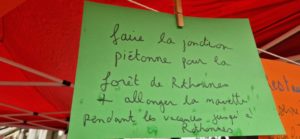 faire la jonction
piétonne pour la
forêt de Rthonnes
+ allonger la navette
pendant les vacances jusqu'à
Rethonnes